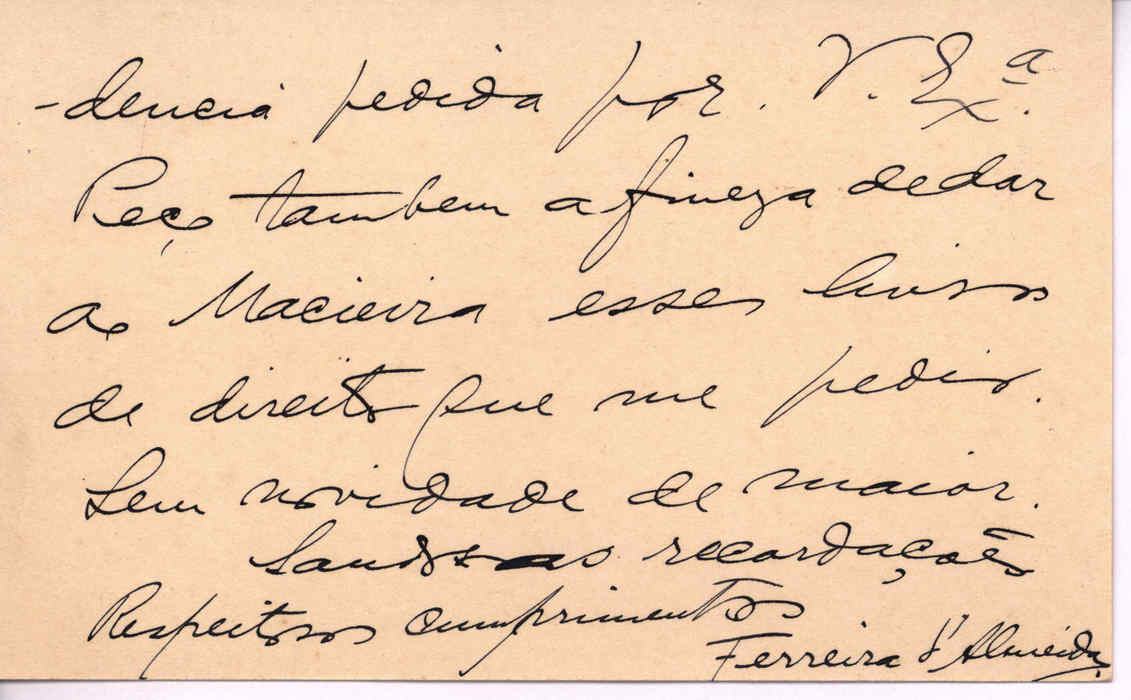 -dencia pedida por. V. Exª.
Peço tambem a fineza de dar
ao Macieira esses livros
de direito que me pediu.
Sem novidade de maior.
Saudosas recordações
Respeitosos cumprimentos
Ferreira d'Almeida